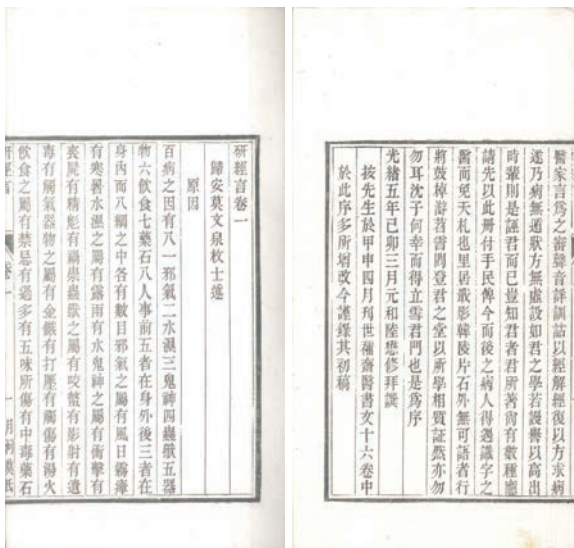 醫家言爲之審聲音詳訓詁以經解經復以方求病
遂乃病無遁狀方無虛設如君之學若謾譽以高出
時輩則是誣君而已豈知君者君所著尙有數種應
請先以此冊付手民俾今而後之病人得遇識字之
醫而免夭札也里居戢影韓陵片石外無可語者行
將鼓棹游苕霅間登君之堂以所學相質証然亦勿
勿耳沈子何幸而得立雪君門也是爲序
光緒五年己卯三月元和陸懋修拜譔
按先生於甲申四月刊世補齋醫書文十六卷中
於此序多所增改今謹錄其初稿
研經言卷一
歸安莫文泉枚士述
原因
百病之因有八一邪氣二水濕三鬼神四蟲獸五器
物六飲食七藥石八人事前五者在身外後三者在
身內而八綱之中各有數目邪氣之屬有風日霧瘴
有寒暑水濕之屬有露雨有水鬼神之屬有衝擊有
喪屍有精魅有禍祟蟲獸之屬有咬螫有影射有遺
毒有觸氣器物之屬有金鏃有打壓有觸傷有湯火
飲食之屬有禁忌有過多有五味所傷有中毒藥石
研經言 卷一 一